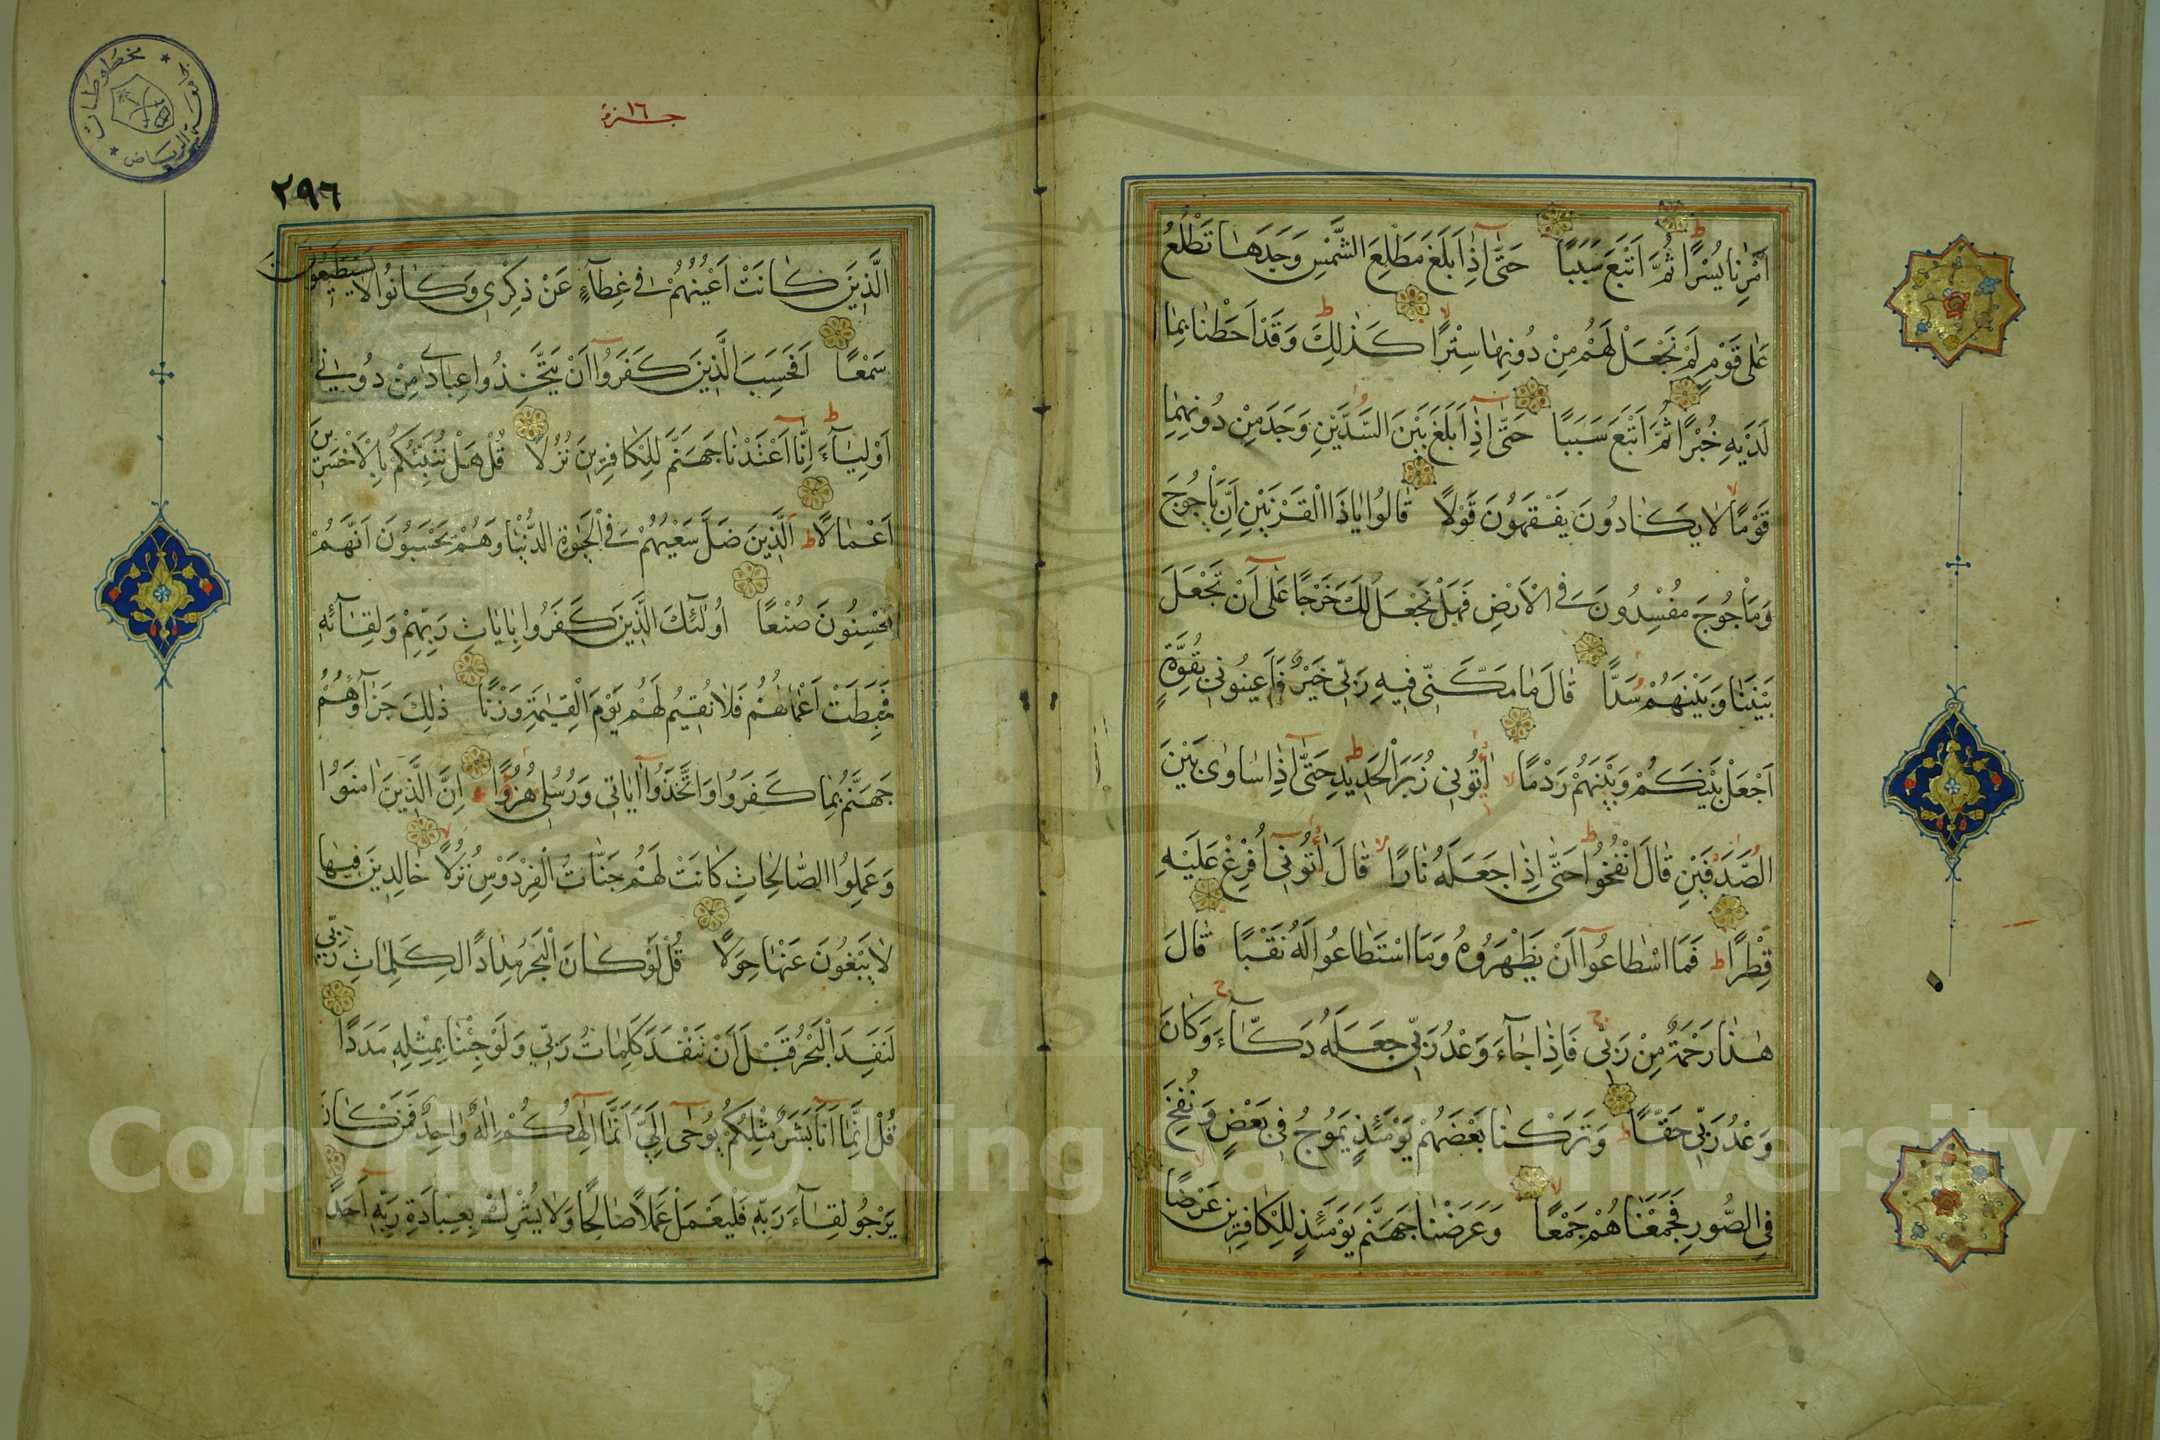 أَمْرِنَا يُسْرًا ثُمَّ اَتْبَعَ سَبَبًا حَتّٰٓى اِذَا بَلَغَ مَطْلِعَ الشَّمْسِ وَجَدَهَا تَطْلُعُ
عَلٰى قَوْمٍ لَمْ نَجْعَلْ لَهُمْ مِنْ دُونِهَا سِتْرًا كَذٰلِكَ وَقَدْ اَحَطْنَا بِمَا
لَدَيْهِ خُبْرًا ثُمَّ اَتْبَعَ سَبَبًا حَتّٰٓى اِذَا بَلَغَ بَيْنَ السَّدَّيْنِ وَجَدَ مِنْ دُونِهِمَا
قَوْمًا لَا يَكَادُونَ يَفْقَهُونَ قَوْلًا قَالُوا يَاذَا الْقَرْنَيْنِ اِنَّ يَاْجُوجَ
وَمَاْجُوجَ مُفْسِدُونَ فِي الْاَرْضِ فَهَلْ نَجْعَلُ لَكَ خَرْجًا عَلٰٓى اَنْ تَجْعَلَ
بَيْنَنَا وَبَيْنَهُمْ سَدًّا قَالَ مَا مَكَّنِّي فِيهِ رَبِّي خَيْرٌ فَاَعِينُونِي بِقُوَّةٍ
اَجْعَلْ بَيْنَكُمْ وَبَيْنَهُمْ رَدْمًا اٰتُونِي زُبَرَ الْحَدِيدِ حَتّٰٓى اِذَا سَاوٰى بَيْنَ
الصَّدَفَيْنِ قَالَ انْفُخُوا حَتّٰٓى اِذَا جَعَلَهُ نَارًا قَالَ اٰتُونِٓي اُفْرِغْ عَلَيْهِ
قِطْرًا فَمَا اسْطَاعُٓوا اَنْ يَظْهَرُوهُ وَمَا اسْتَطَاعُوا لَهُ نَقْبًا قَالَ
هٰذَا رَحْمَةٌ مِنْ رَبِّي فَاِذَا جَٓاءَ وَعْدُ رَبِّي جَعَلَهُ دَكَّٓاءَ وَكَانَ
وَعْدُ رَبِّي حَقًّا وَتَرَكْنَا بَعْضَهُمْ يَوْمَئِذٍ يَمُوجُ فِي بَعْضٍ وَنُفِخَ
فِي الصُّورِ فَجَمَعْنَاهُمْ جَمْعًا وَعَرَضْنَا جَهَنَّمَ يَوْمَئِذٍ لِلْكَافِرِينَ عَرْضًا
جزء ١٦
٢٩٦
الَّذِينَ كَانَتْ اَعْيُنُهُمْ فِي غِطَٓاءٍ عَنْ ذِكْرِي وَكَانُوا لَا يَسْتَطِيعُونَ
سَمْعًا اَفَحَسِبَ الَّذِينَ كَفَرُٓوا اَنْ يَتَّخِذُوا عِبَادِي مِنْ دُونِي
اَوْلِيَٓاءَ اِنَّٓا اَعْتَدْنَا جَهَنَّمَ لِلْكَافِرِينَ نُزُلًا قُلْ هَلْ نُنَبِّئُكُمْ بِالْاَخْسَرِينَ
اَعْمَالًا الَّذِينَ ضَلَّ سَعْيُهُمْ فِي الْحَيٰوةِ الدُّنْيَا وَهُمْ يَحْسَبُونَ اَنَّهُمْ
يُحْسِنُونَ صُنْعًا اُولٰٓئِكَ الَّذِينَ كَفَرُوا بِاٰيَاتِ رَبِّهِمْ وَلِقَٓائِهِ
فَحَبِطَتْ اَعْمَالُهُمْ فَلَا نُقِيمُ لَهُمْ يَوْمَ الْقِيٰمَةِ وَزْنًا ذٰلِكَ جَزَٓاؤُهُمْ
جَهَنَّمُ بِمَا كَفَرُوا وَاتَّخَذُٓوا اٰيَاتِي وَرُسُلِي هُزُوًا اِنَّ الَّذِينَ اٰمَنُوا
وَعَمِلُوا الصَّالِحَاتِ كَانَتْ لَهُمْ جَنَّاتُ الْفِرْدَوْسِ نُزُلًا خَالِدِينَ فِيهَا
لَا يَبْغُونَ عَنْهَا حِوَلًا قُلْ لَوْ كَانَ الْبَحْرُ مِدَادًا لِكَلِمَاتِ رَبِّي
لَنَفِدَ الْبَحْرُ قَبْلَ اَنْ تَنْفَدَ كَلِمَاتُ رَبِّي وَلَوْ جِئْنَا بِمِثْلِهِ مَدَدًا
قُلْ اِنَّمَٓا اَنَا بَشَرٌ مِثْلُكُمْ يُوحٰٓى اِلَيَّ اَنَّمَٓا اِلٰهُكُمْ اِلٰهٌ وَاحِدٌ فَمَنْ كَانَ
يَرْجُو لِقَٓاءَ رَبِّهِ فَلْيَعْمَلْ عَمَلًا صَالِحًا وَلَا يُشْرِكْ بِعِبَادَةِ رَبِّهِ اَحَدًا
مخطوطات
الرياض
Copyright © King Saud University